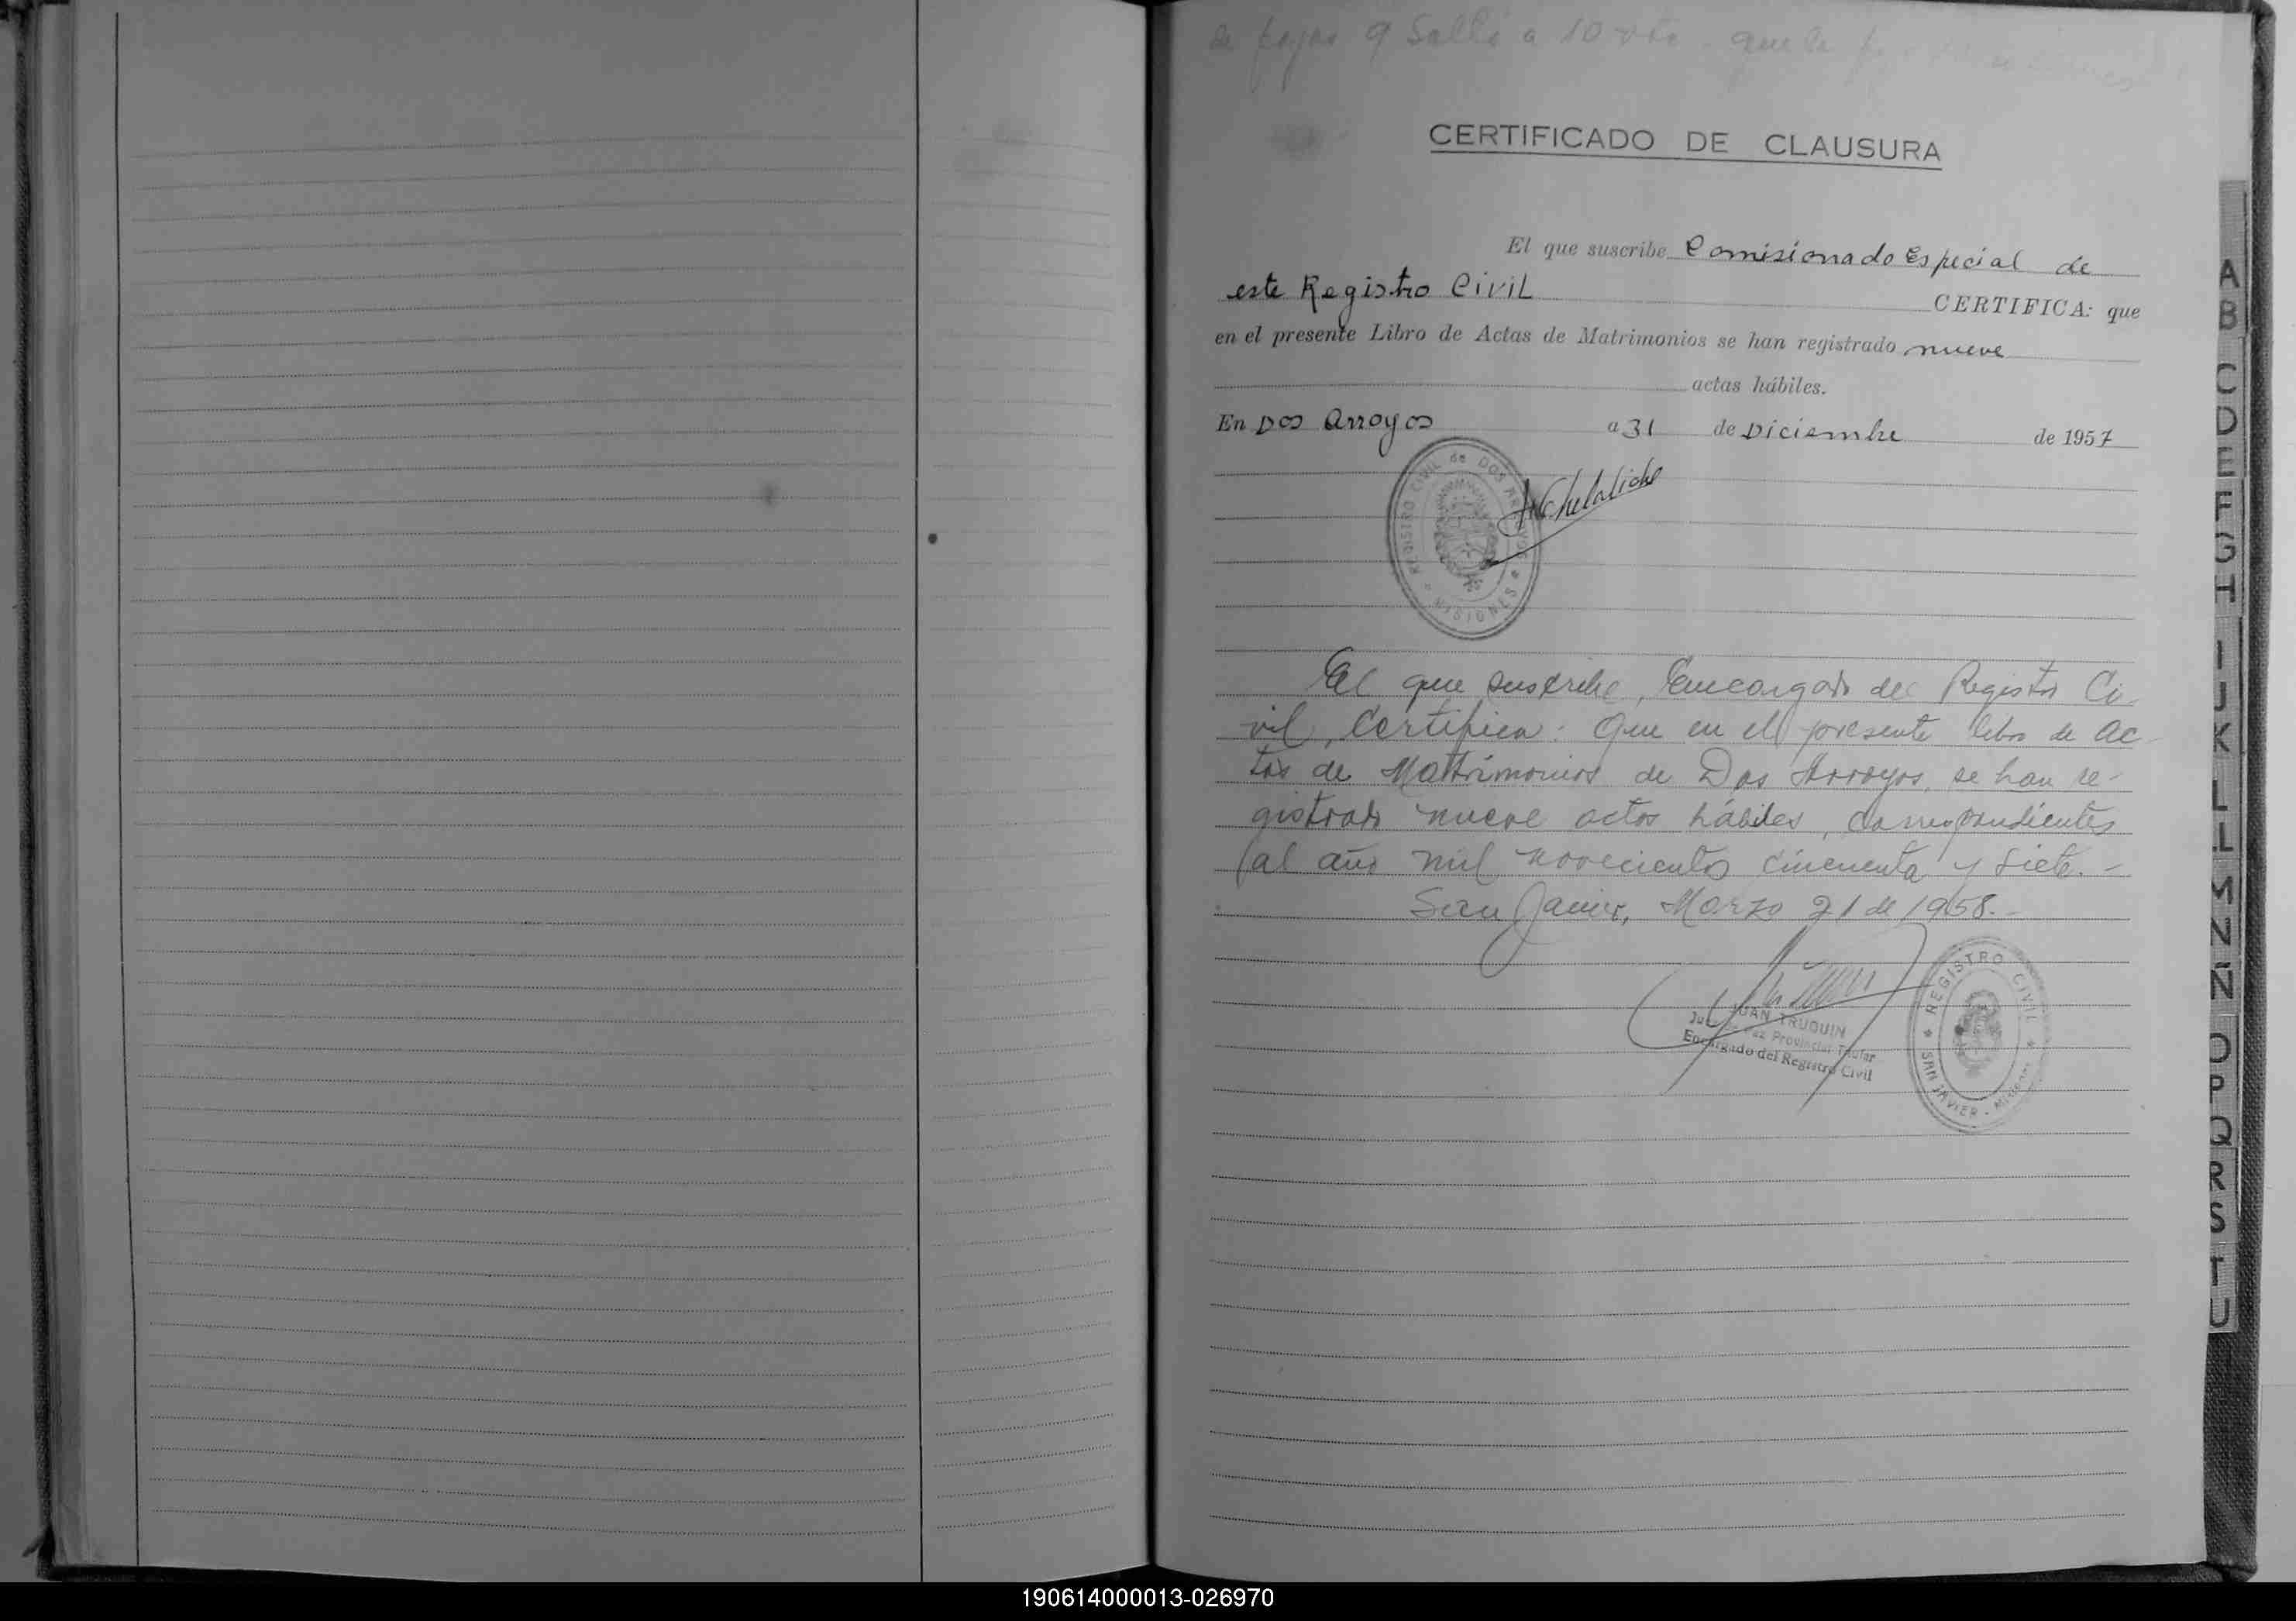 CERTIFICADO DE CLAUSURA
El que suscribe Comisionado Especial de
este Registro Civil CERTIFICA: que
en el presente Libro de Actas de Matrimonios se han registrado nueve
actas hábiles.
En Dos Arroyos a 31 de Diciembre de 1957
REGISTRO CIVIL de DOS ARROYOS
MISIONES
El que suscribe, Encargado del Registro Ci-
vil, Certifica: Que en el presente libro de Ac-
tas de Matrimonios de Dos Arroyos, se han re-
gistrado nueve actas hábiles, correspondientes
al año mil novecientos cincuenta y siete.-
San Javier, Marzo 21 de 1958.-
JUAN TRUQUIN
Juez de Paz Provincial Titular
Encargado del Registro Civil
REGISTRO CIVIL
SAN JAVIER - MISIONES
A
B
C
D
E
F
G
H
I
J
K
L
LL
M
N
Ñ
O
P
Q
R
S
T
U
190614000013-026970